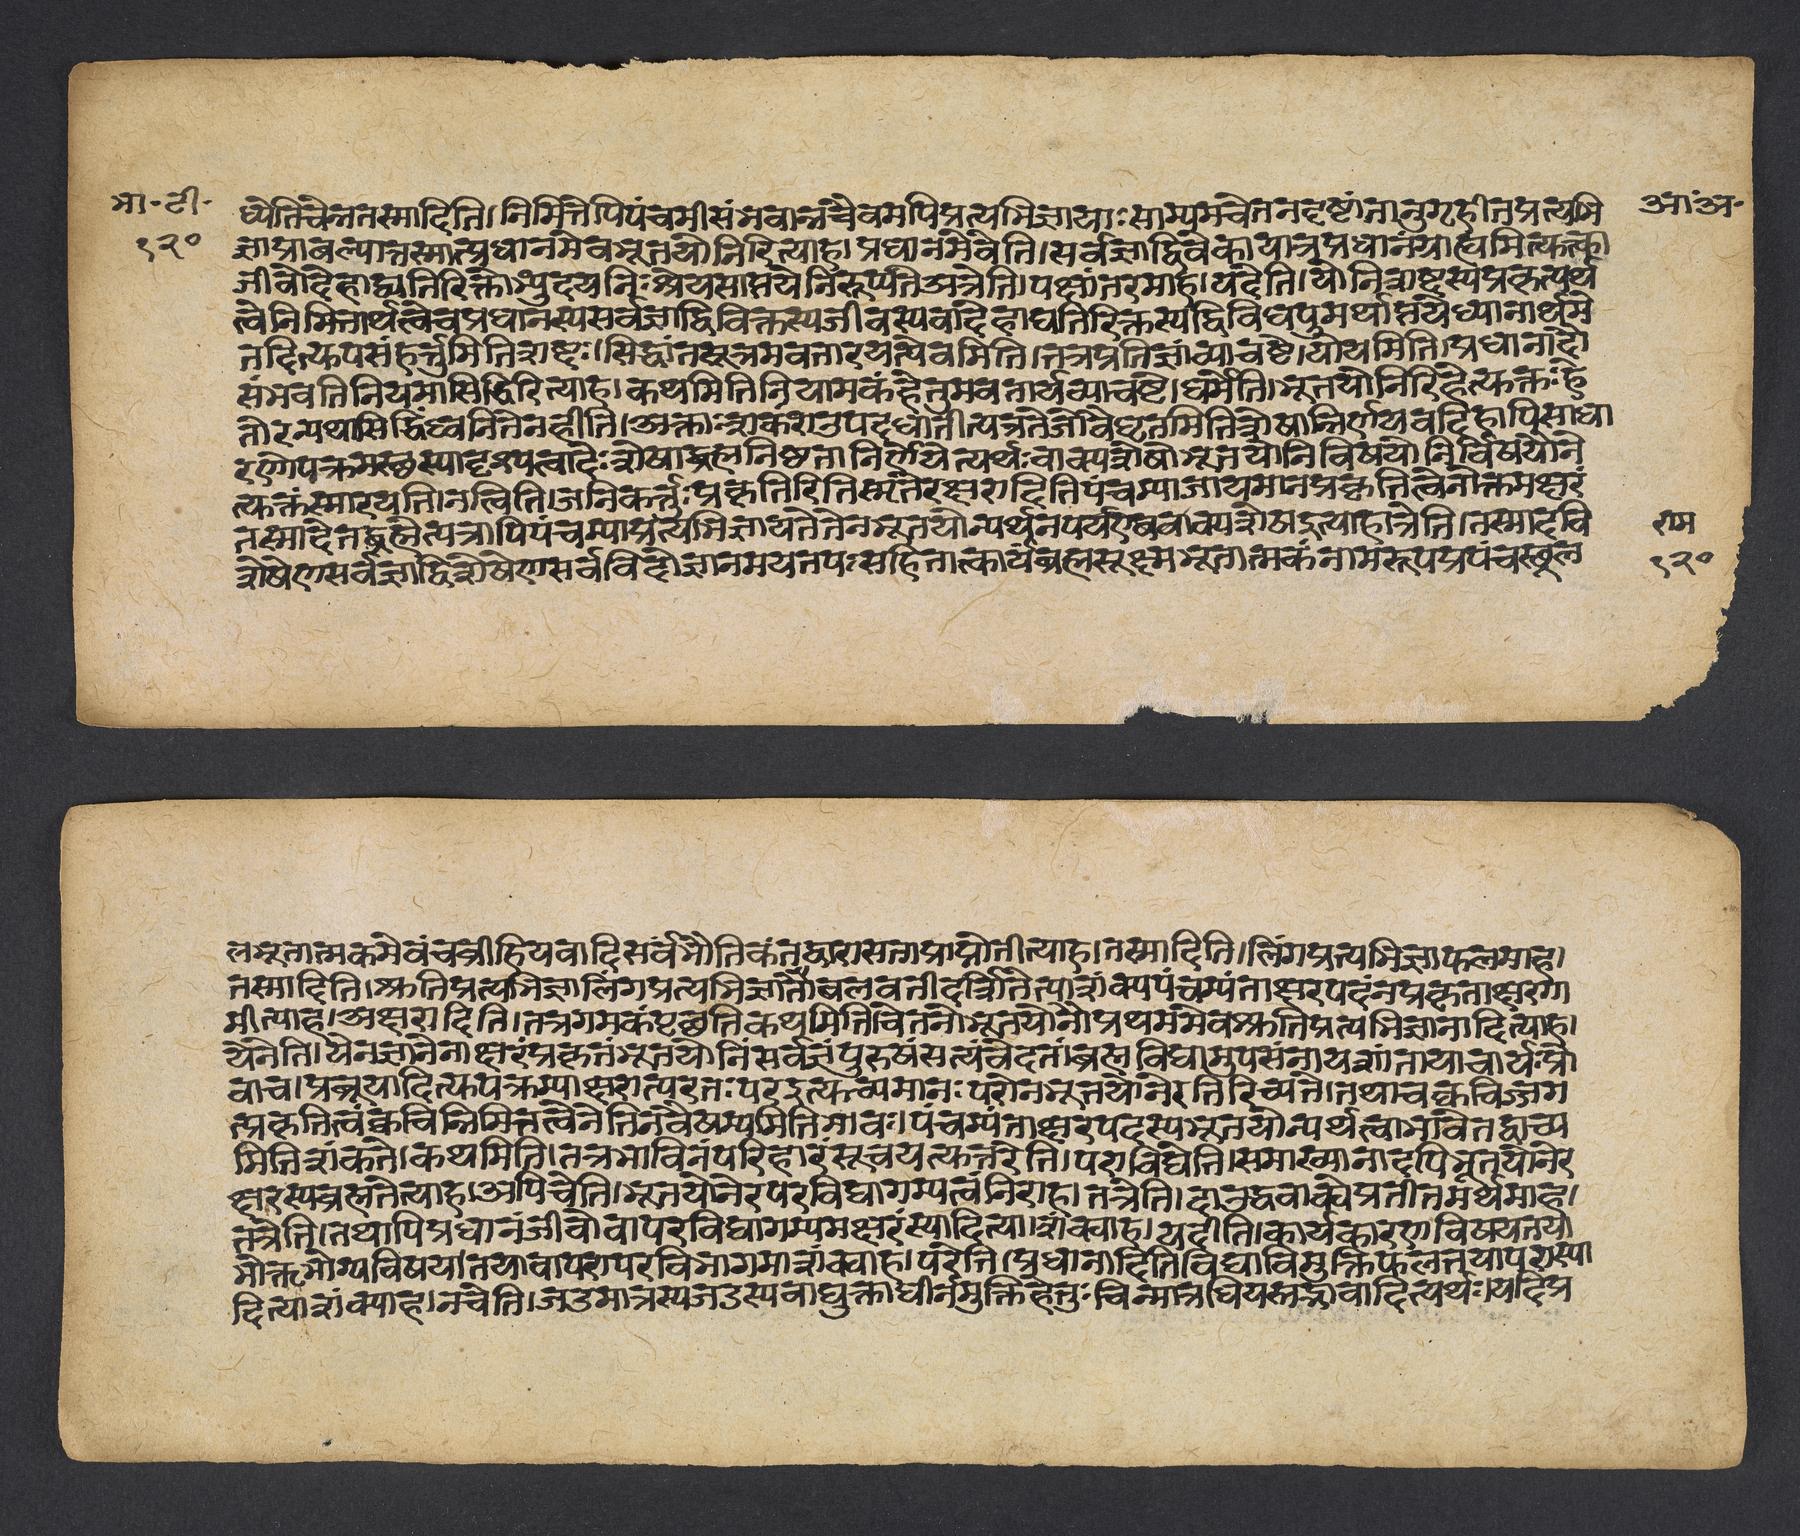 भा॰ टी॰
१२०
आ॰ अ॰
ष्येतिचेन्नतस्मादिति।निमित्तेपिपंचमीसंभवान्नचैवमपिप्रत्यभिज्ञायाःसाम्यमचेतनदृष्टांतानुगृहीतप्रत्यभि
ज्ञाप्राबल्यात्तस्मात्प्रधानमेवभूतयोनिरित्याह।प्रधानमेवेति।सर्वज्ञाद्विवेकायात्रप्रधानंग्राह्यमित्युत्का
जीवोदेहाद्यतिरिक्तोभ्युदयनिःश्रेयसाप्तयेनिरूप्यतेअत्रेति।पक्षांतरमाह।यदेति।योनिशब्दस्यप्रकृत्यर्थ
त्वेनिमित्तार्थत्वेचप्रधानस्यसर्वज्ञाद्विविक्तस्यजीवस्यवादेहाद्यतिरिक्तस्यद्विविधपुमर्थाप्तयेध्यानार्थमे
तदित्युपसंहर्त्तुमितिशब्दः।सिद्धांतसूत्रमवतारयत्येवमिति।तत्रप्रतिज्ञांव्याचष्टे।योयमिति।प्रधानादौ
संभवतिनियमासिद्धिरित्याह।कथमितिनियामकंहेतुमवतार्यव्याचष्टे।धर्मेति।भूतयोनिरिहेत्युक्तःहे
तोरन्यथासिद्धिंध्वनितेनहीति।अक्ताःशर्कराउपदधातीत्यत्रतेजोवैघृतमितिशेषान्निर्णयवदिहापिसाधा
रणोपक्रमस्थस्यादृश्यत्वादेःशेषाद्ब्रह्मनिष्ठतानिर्णयेत्यर्थःवाक्यशेषोभूतयोनिविषयोनिर्विषयोने
त्युक्तंस्मारयति।नत्विति।जनिकर्त्तुःप्रकृतिरितिस्मृतेरक्षरादितिपंचम्याजायमानप्रकृतित्वेनोक्तमक्षरं
तस्मादेतद्ब्रह्मेत्यत्रापिपंचम्याप्रत्यभिज्ञायतेतेनभूतयोन्यर्थनपर्यएववाक्यशेषइत्याहात्रेति।तस्मादवि
शेषेणसर्वज्ञाद्विशेषेणसर्वविदोज्ञानमयतपःसहितात्कार्यंब्रह्मसूक्ष्मभूतात्मकंनामरूपप्रपंचस्थूल
राम
१२०
लभूतात्मकमेवंचव्रीहियवादिसर्वंभौतिकंतद्वारासत्ताप्राप्नोतीत्याह।तस्मादिति।लिंगप्रत्यभिज्ञाफलमाह।
तस्मादिति।श्रुतिप्रत्यभिज्ञालिंगप्रत्यभिज्ञातोबलवतीदर्शितेत्याशंक्यपंचम्यंताक्षरपदंनप्रकृताक्षरगा
मीत्याह।अक्षरादिति।तत्रगमकंपृच्छतिकथमितिचितनोभूतयोनोप्रथममेवश्रुतिप्रत्यभिज्ञानादित्याह।
येनेति।येनज्ञानेनाक्षरंप्रकृतंभूतयोनिंसर्वज्ञंपुरुषंसत्यंवेदतांब्रह्मविद्यामुपसंनायशांतायाचार्यःप्रो
वाच।प्रब्रूयादित्युपक्रम्याक्षरात्परतःपरइत्युच्यमानःपरोनभूतयोनेरतिरिच्यते।तथाचक्वचिज्जग
त्प्रकृतित्वंक्वचिन्निमित्तत्वेनेतिनवैषम्यमितिभावः।पंचम्यंताक्षरपदस्यभूतयोन्यर्थत्वाभावेतद्वाच्य
मितिशंकते।कथमिति।तत्रभाविनंपरिहारंसूचयत्युत्तरेति।पराविद्येति।समाख्यानादपिभूतयोनेर
क्षरस्यब्रह्मतेत्याह।अपिचेति।भूतयोनेरपरविद्यागम्यत्वंनिराह।तत्रेति।दाउद्धवाक्येप्रतीतमर्थमाह।
तत्रेति।तथापिप्रधानंजीवोवापरविद्यागम्यमक्षरंस्यादित्या।शंक्याह।यदीति।कार्यकारणविषयतया
भोक्तृभोग्यविषय।तयावापरापरविभागमाशंक्याह।परेति।प्रधानादितिविद्याविमुक्तिफलतयापरास्या
दित्याशंक्याह।नचेति।जडमात्रस्यजडस्यवाघुक्ताधीर्नमुक्तिहेतुःचिन्मात्रधियस्तद्भावादित्यर्थः।यदिप्र